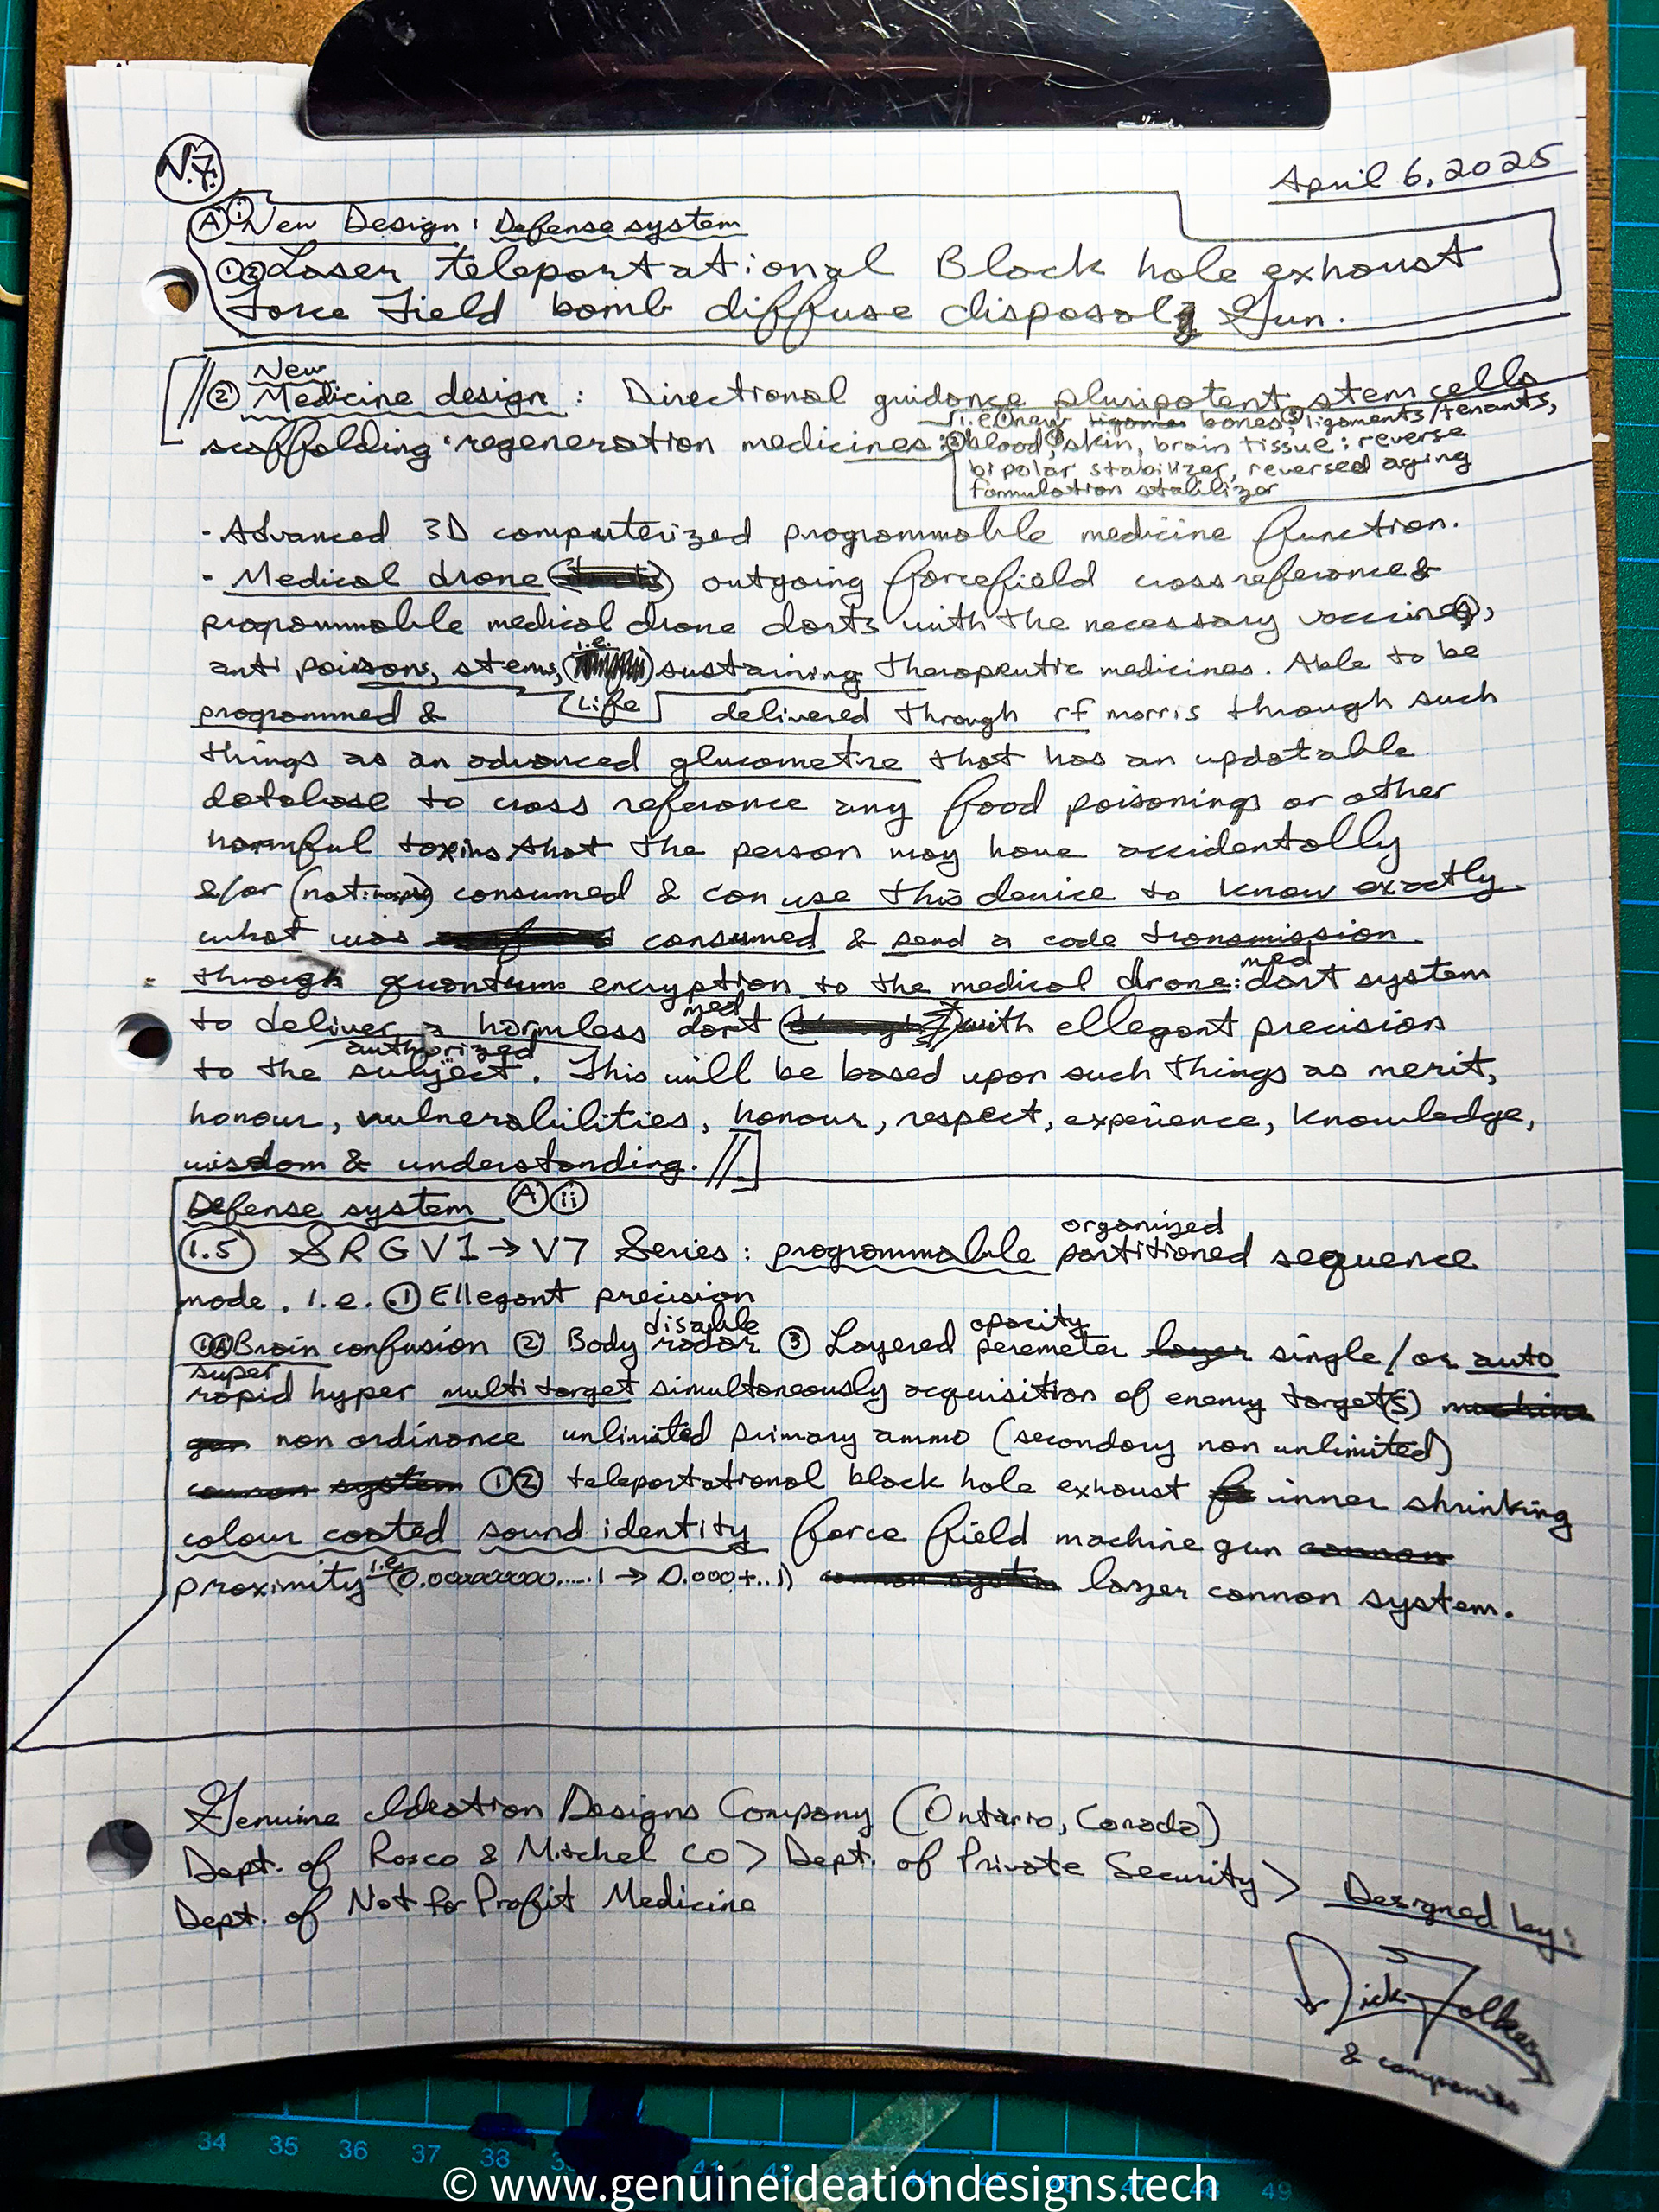 N.J.
April 6, 2025
A i New Design: Defense system
12 Laser teleportational Black hole exhaust
Force Field bomb diffuse disposal Gun.
New
2 Medicine design: Directional guidance pluripotent stem cells
scaffolding regeneration medicines:
i.e. 1 new bones, 3 ligaments/tenants,
2 blood, skin, brain tissue: reverse
bipolar stabilizer, reversed aging
formulation stabilizer
- Advanced 3D computerized programmable medicine function.
- Medical drone outgoing forcefield cross reference &
programmable medical drone darts with the necessary vaccine(s),
anti poisons, stems, i.e. sustaining therapeutic medicines. Able to be
programmed & Life delivered through rf morris through such
things as an advanced glucometre that has an updatable
database to cross reference any food poisonings or other
harmful toxins that the person may have accidentally
&/or consumed & can use this device to know exactly
what was consumed & send a code transmission
through quantum encryption to the medical drone: med dart system
to deliver a harmless med dart with ellegant precision
to the authorized subject. This will be based upon such things as merit,
honour, vulnerabilities, honour, respect, experience, knowledge,
wisdom & understanding.
Defense system A ii
1.5 SRG V1 → V7 Series: programmable organized partitioned sequence
mode. I.e. .1 Ellegant precision
1A Brain confusion 2 Body disable radar 3 Layered opacity peremeter single/or auto
super
rapid hyper multi target simultaneously acquisition of enemy target(s)
non ordinance unlimited primary ammo (secondary non unlimited)
12 teleportational black hole exhaust inner shrinking
colour coated sound identity force field machine gun
proximity i.e. (0.00000000.....1 → 0.000+..1) lazer cannon system.
Genuine Ideation Designs Company (Ontario, Canada)
Dept. of Rosco & Mitchel CO > Dept. of Private Security >
Dept. of Not for Profit Medicine
Designed by:
Dick Folkers
& companies
34 35 36 37 38 41 42 44 45 46 48 49 53 54
© www.genuineideationdesigns.tech